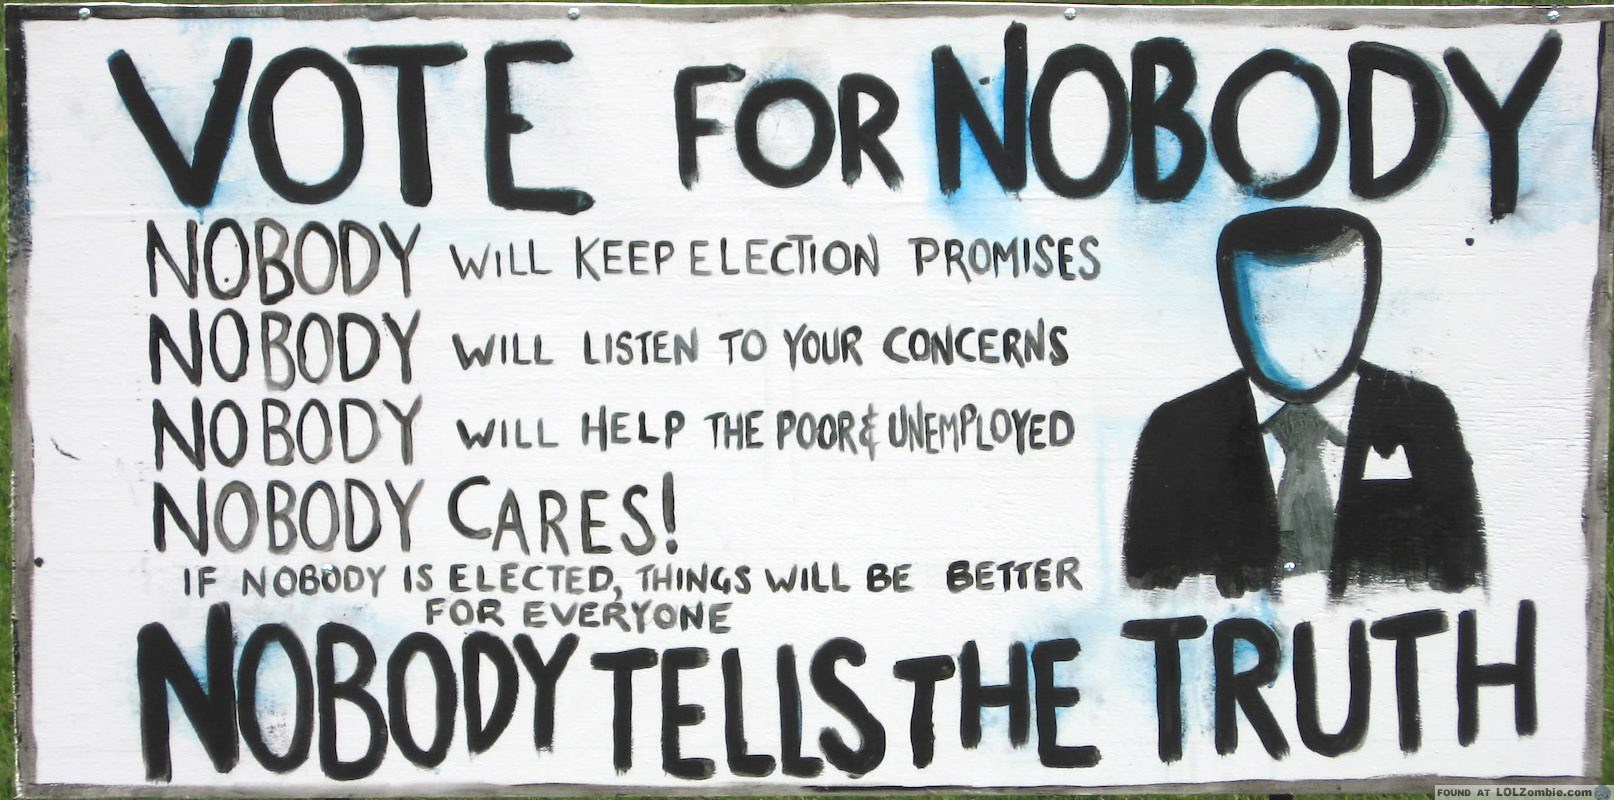 VOTE FOR NOBODY
NOBODY WILL KEEP ELECTION PROMISES
NOBODY WILL LISTEN TO YOUR CONCERNS
NOBODY WILL HELP THE POOR & UNEMPLOYED
NOBODY CARES!
IF NOBODY IS ELECTED, THINGS WILL BE BETTER
FOR EVERYONE
NOBODY TELLS THE TRUTH
FOUND AT LOLZombie.com